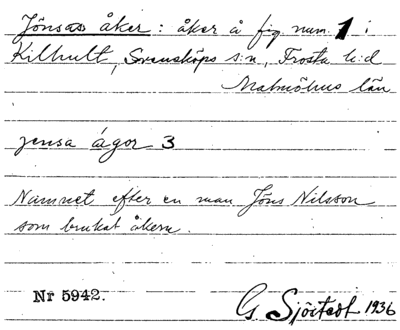 Jönsas åker: åker å fig. num. 1 i
Kilhult, Svensköps s:n, Frosta h:d
Malmöhus län
jensa ágor 3
Namnet efter en man Jöns Nilsson
som brukat åkern.
Nr 5942.
G Sjöstedt 1936